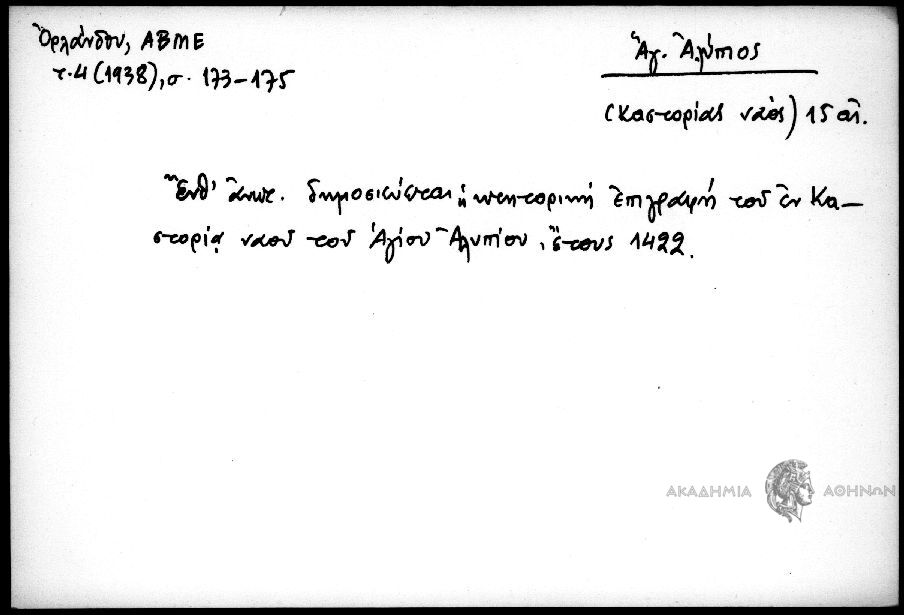 Ὀρλάνδου, ΑΒΜΕ
τ. 4 (1938), σ. 173-175
Ἅγ. Ἀλύπιος
(Καστορίας ναὸς) 15 αἰ.
Ἔνθ' ἀνωτ. δημοσιεύεται ἡ κτητορική ἐπιγραφή τοῦ ἐν Κα-
στορίᾳ ναοῦ τοῦ Ἁγίου Ἀλυπίου, ἔτους 1422.
ΑΚΑΔΗΜΙΑ ΑΘΗΝΩΝ